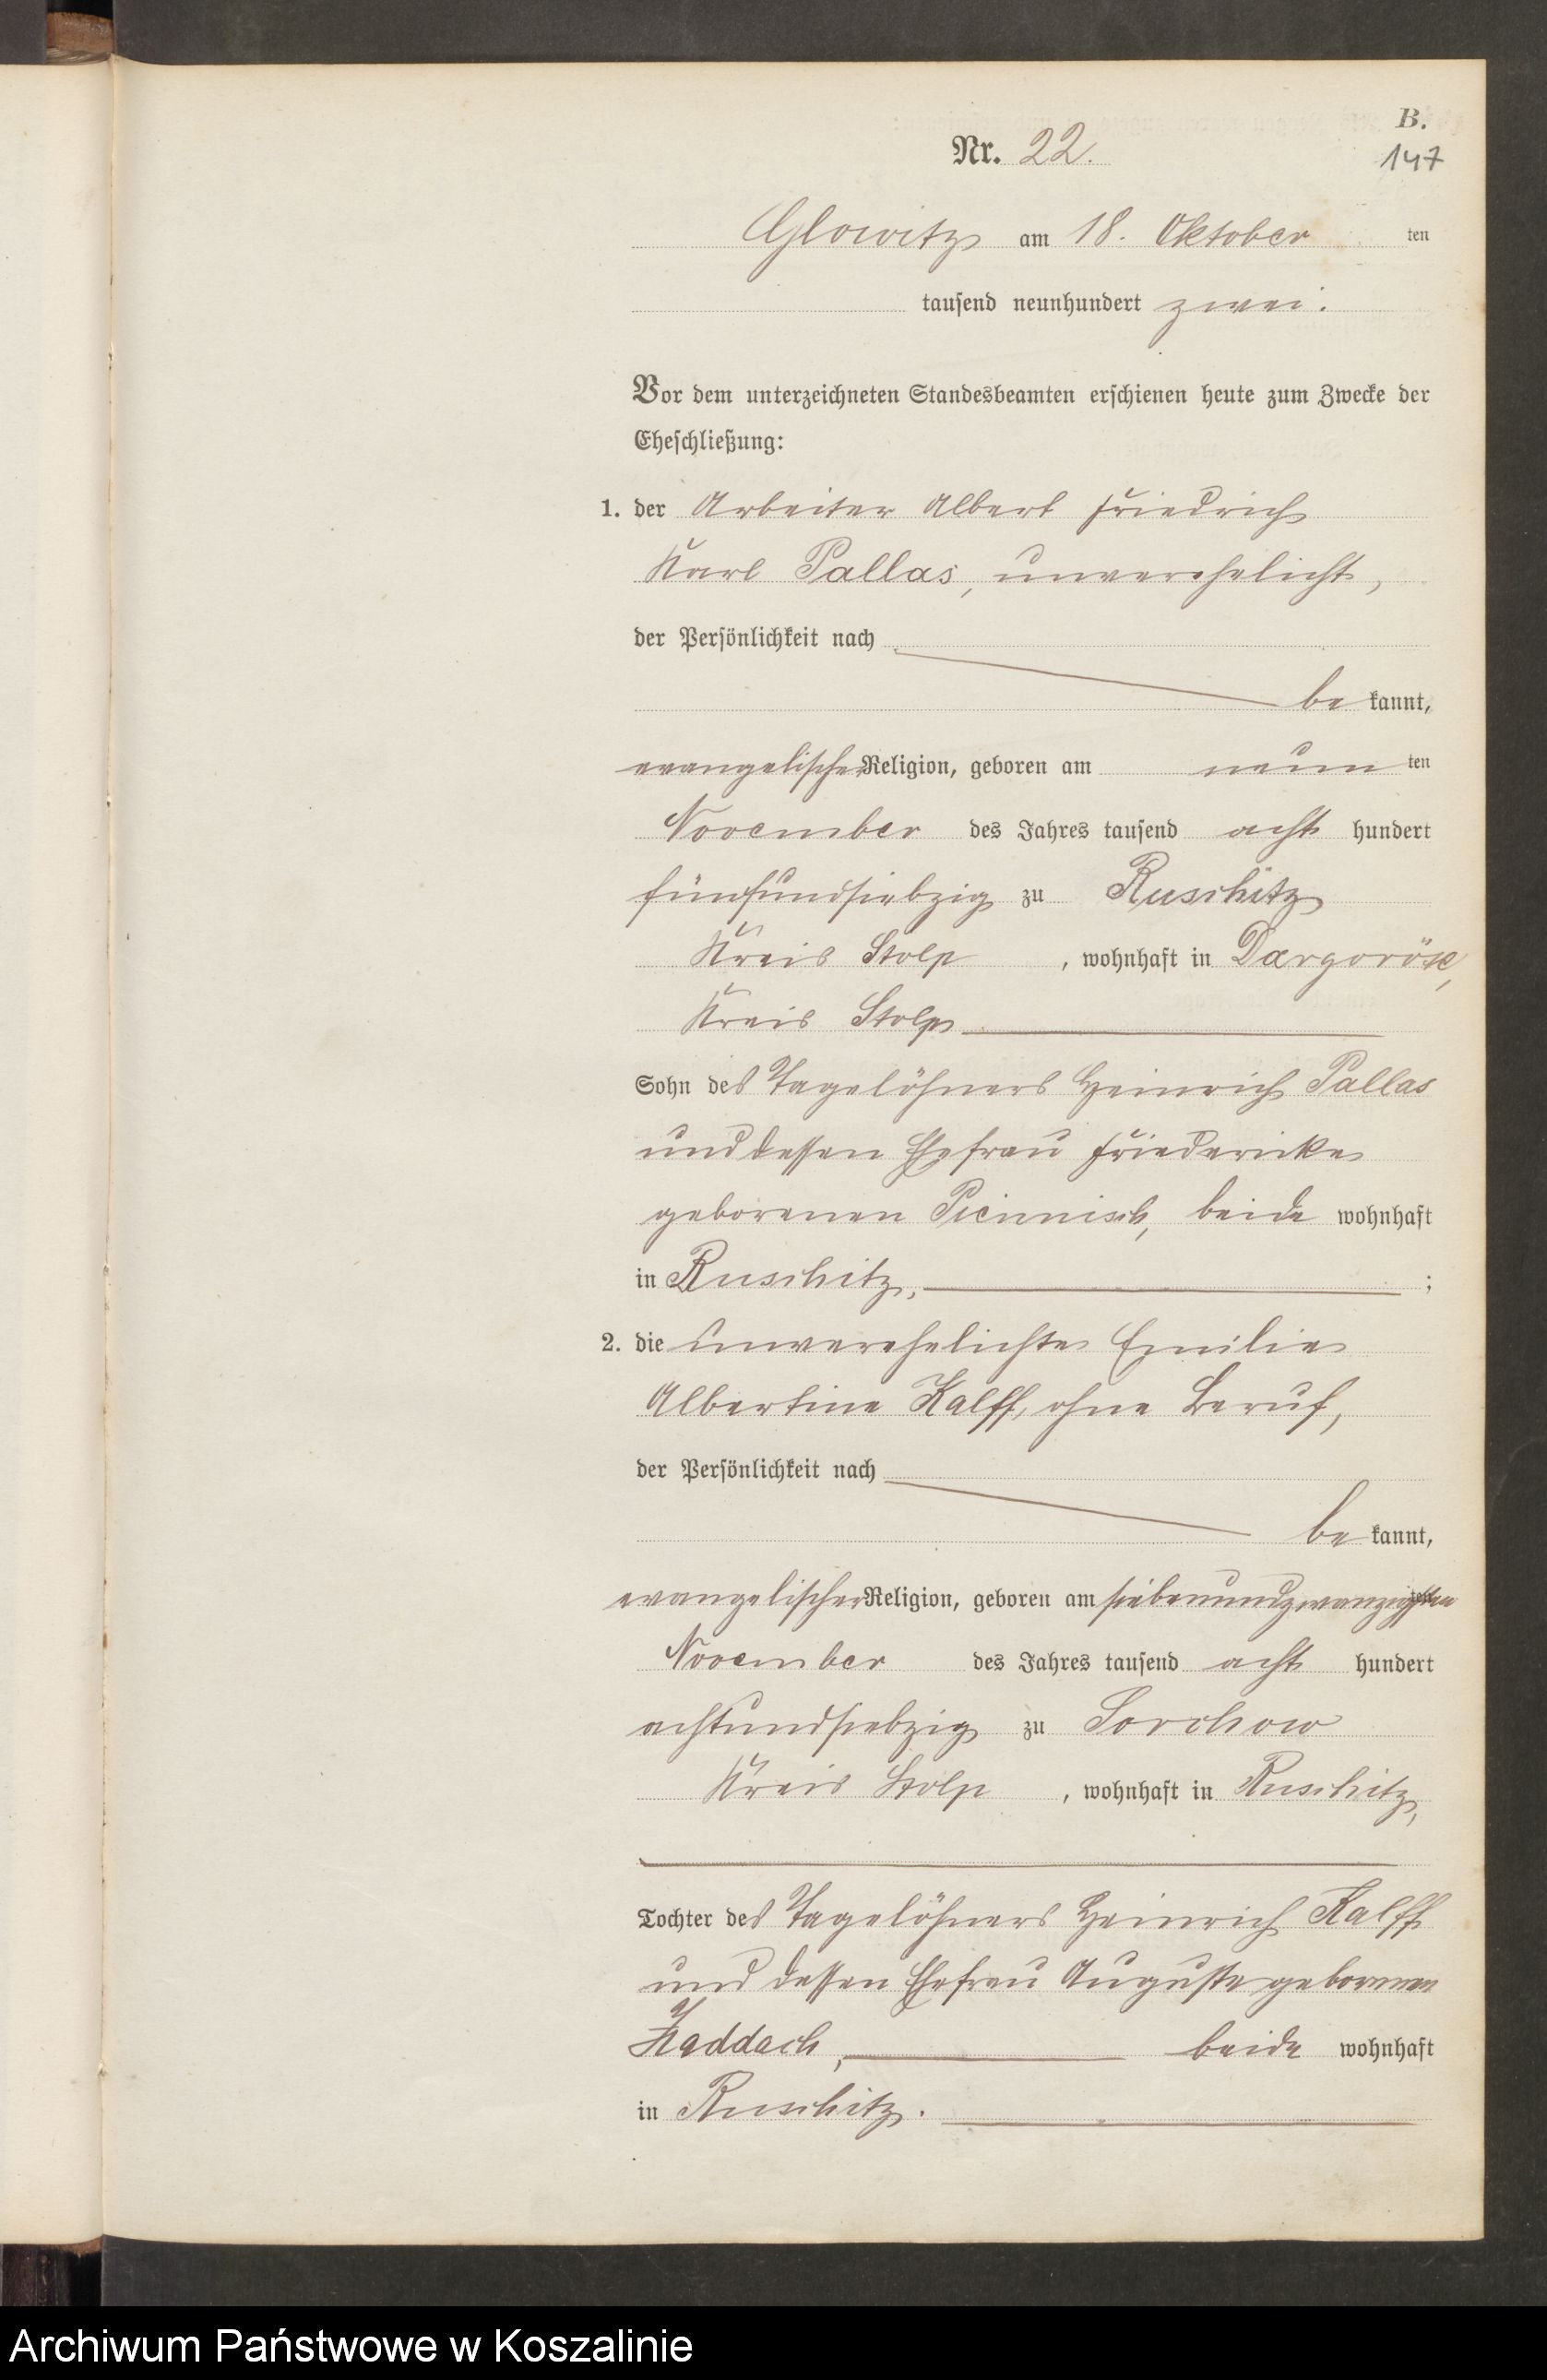 B.
Nr. 22.
147
Glowitz am 18. Oktober ten
tausend neunhundert zwei.
Vor dem unterzeichneten Standesbeamten erschienen heute zum Zwecke der
Eheschließung:
1. der Arbeiter Albert Friedrich
Karl Pallas, unverehelicht,
der Persönlichkeit nach
be kannt,
evangelischer Religion, geboren am neun ten
November des Jahres tausend acht hundert
fünfundsiebzig zu Ruschitz
Kreis Stolp , wohnhaft in Dargeröse,
Kreis Stolp
Sohn des Tagelöhners Heinrich Pallas
und dessen Ehefrau Friedericke
geborenen beide wohnhaft
in Ruschitz, ;
2. die unverehelichte Emilie
Albertine Kalff, ohne Beruf,
der Persönlichkeit nach
be kannt,
evangelischer Religion, geboren am siebenundzwanzigsten
November des Jahres tausend acht hundert
achtundsiebzig zu Sorchow
Kreis Stolp , wohnhaft in Ruschitz,
Tochter des Tagelöhners Heinrich Kalff
und dessen Ehefrau Auguste geborenen
Haddach, beide wohnhaft
in Ruschitz.
Archiwum Państwowe w Koszalinie